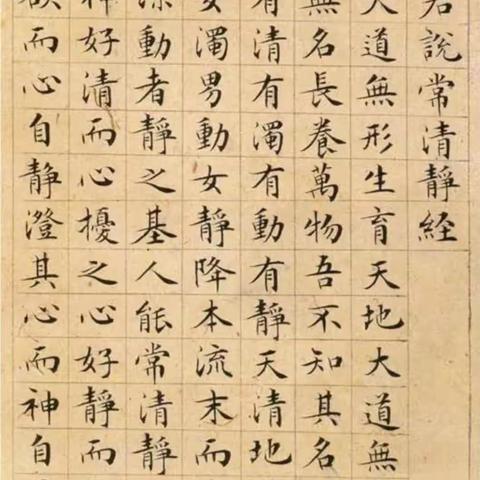 君說常清靜経
大道無形生育天地大道無
無名長養萬物吾不知其名
有清有濁有動有靜天清地
女濁男動女靜降本流末而
源動者靜之基人能常清靜
神好清而心擾之心好靜而
欲而心自靜澄其心而神自